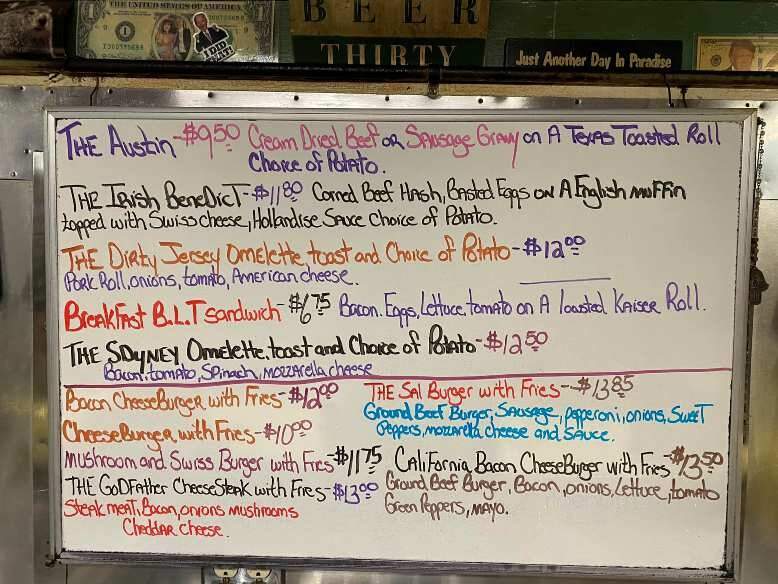 THE UNITED STATES OF AMERICA
I DID THAT!
BEER
THIRTY
Just Another Day In Paradise
THE Austin - $9.50 Cream Dried Beef or Sausage Gravy on A Texas Toasted Roll
Choice of Potato.
THE IRish BeneDicT - $11.80 Corned Beef Hash, Basted Eggs on A English muffin
topped with Swiss cheese, Hollandise Sauce Choice of Potato.
THE Dirty Jersey Omelette, toast and Choice of Potato - $12.00
Pork Roll, onions, tomato, American cheese.
BreakFast B.L.T sandwich $6.75 Bacon. Eggs, Lettuce, tomato on A toasted Kaiser Roll.
THE SDyNEY Omelette, toast and Choice of Potato - $12.50
Bacon, tomato, Spinach, mozzarella cheese
Bacon CheeseBurger with Fries - $12.00
THE Sal Burger with Fries - $13.85
Ground Beef Burger, Sausage, pepperoni, onions, Sweet
Peppers, mozzarella cheese and Sauce.
CheeseBurger with Fries - $10.00
Mushroom and Swiss Burger with Fries - $11.75
CaliFornia Bacon CheeseBurger with Fries - $13.50
Ground Beef Burger, Bacon, onions, Lettuce, tomato
Green Peppers, mayo.
THE GoDFather CheeseSteak with Fries - $13.00
Steak meat, Bacon, onions mushrooms
Cheddar cheese.